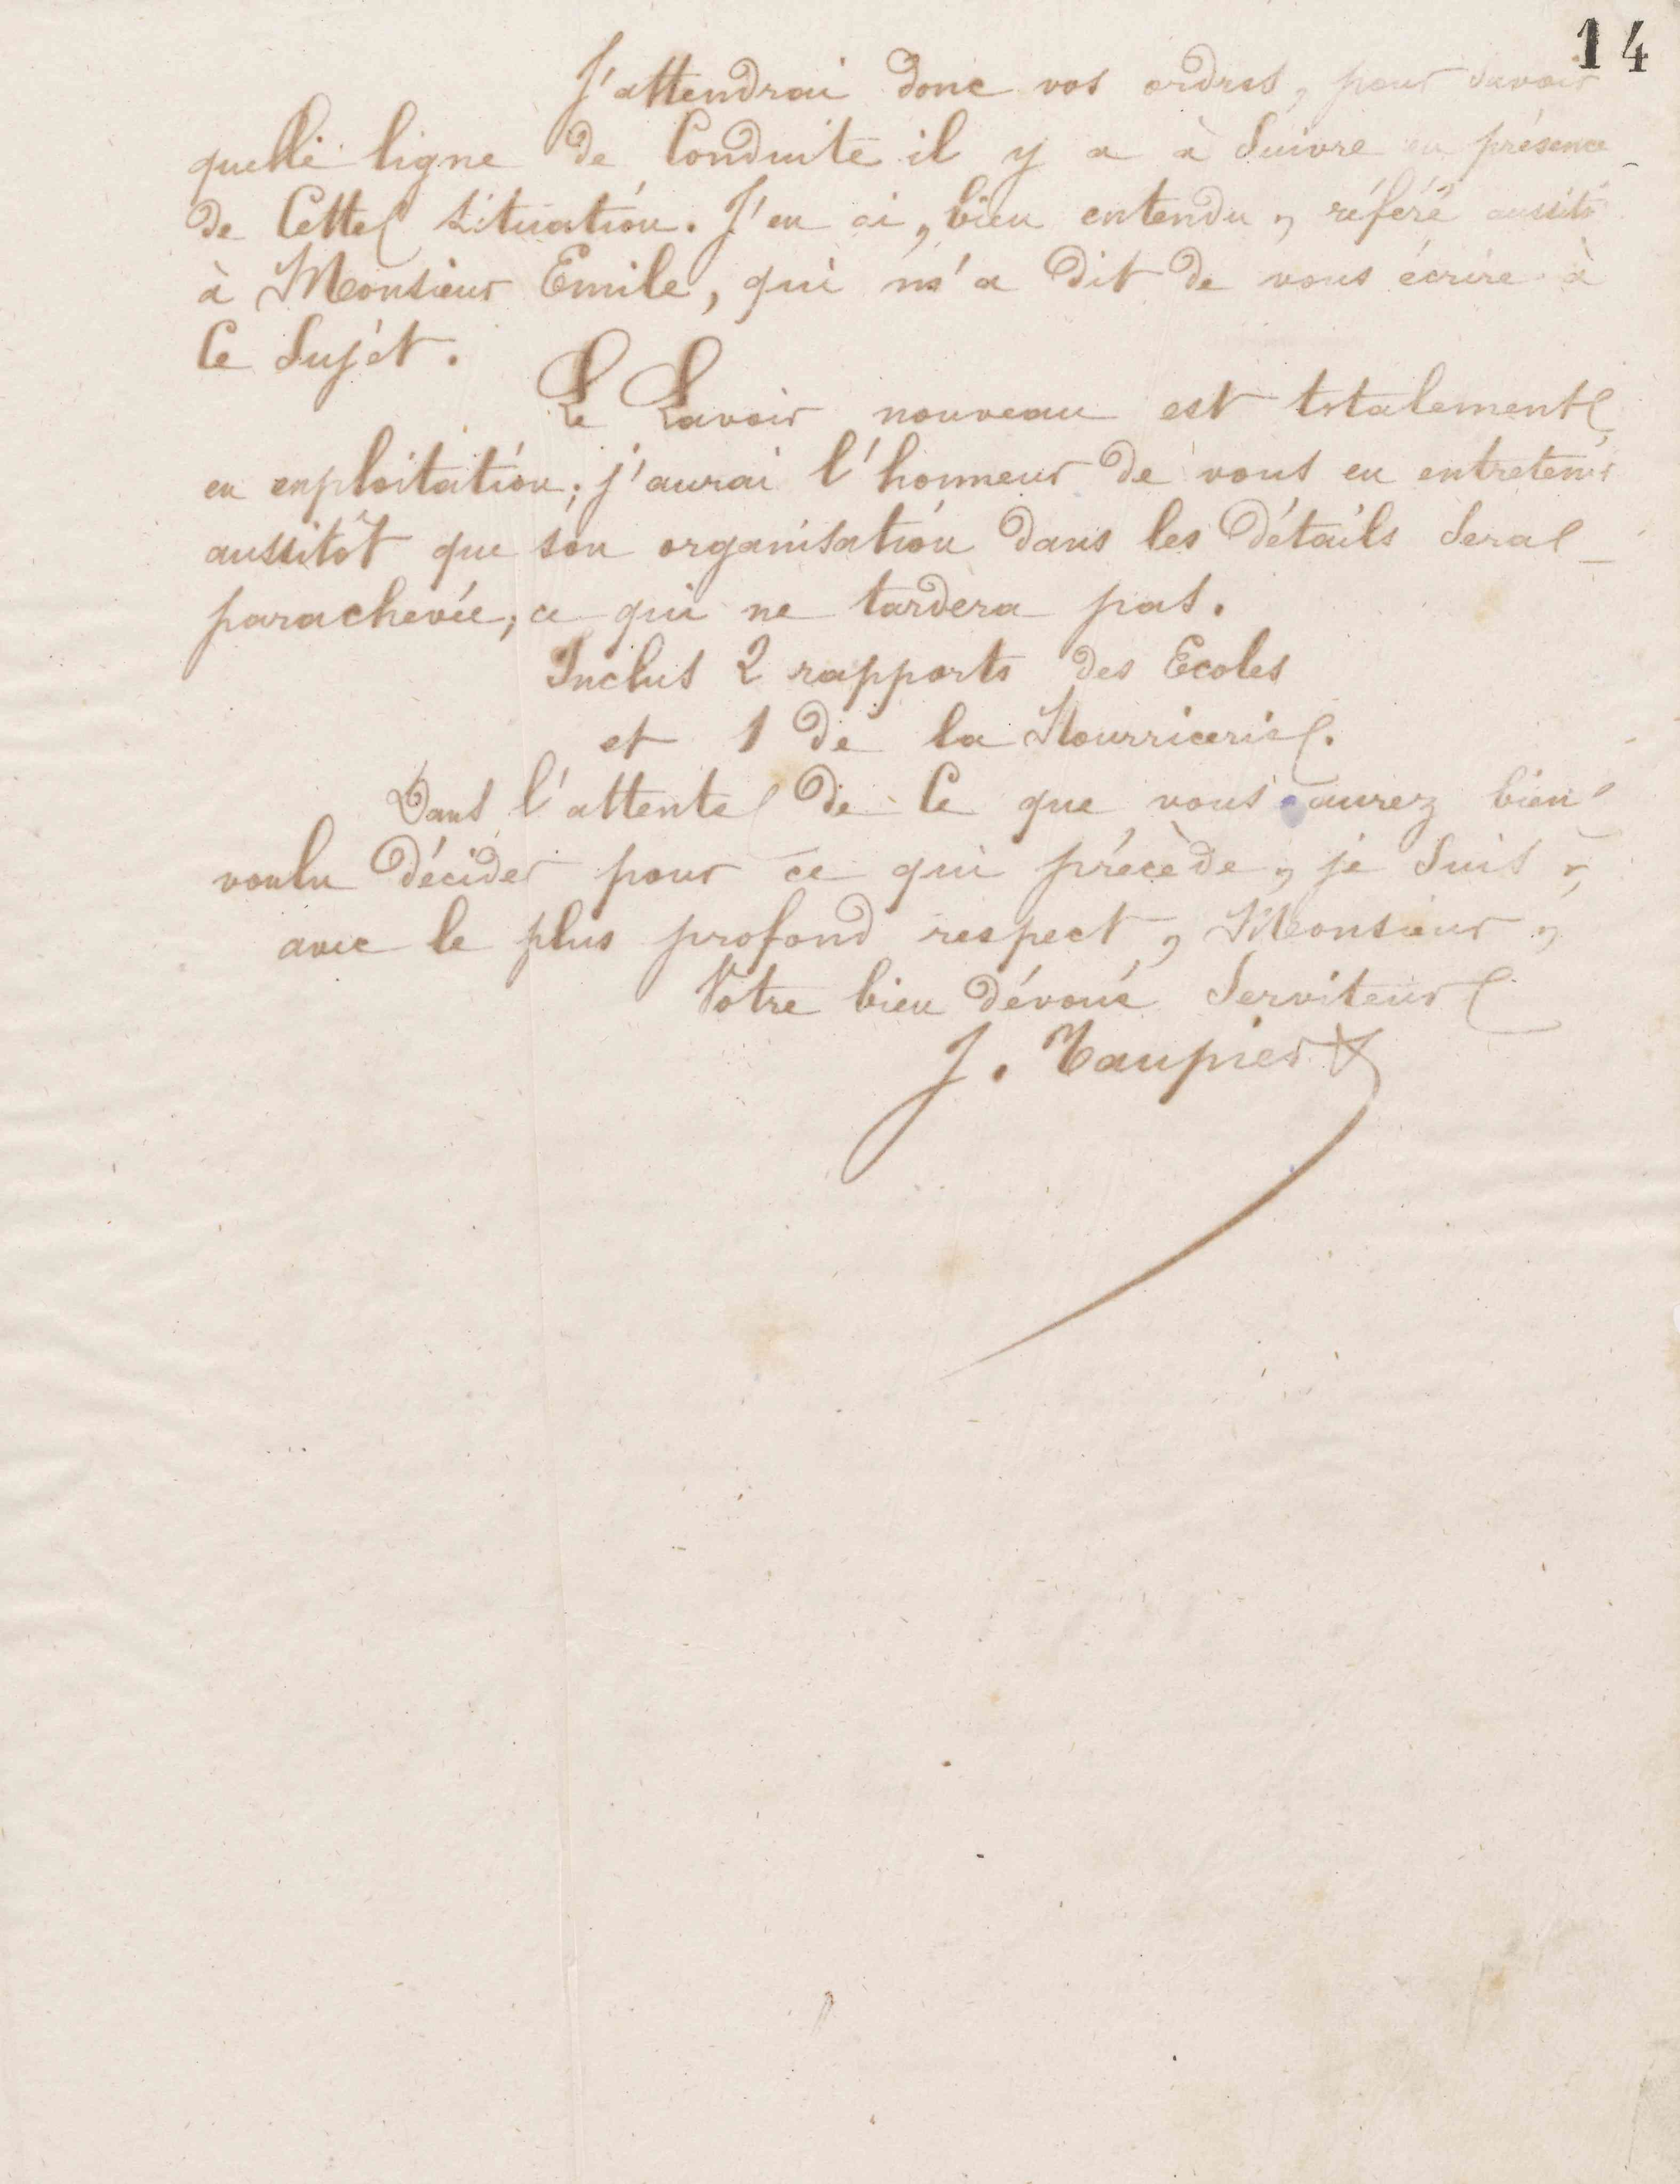 14
J'attendrai donc vos ordres, pour savoir
quelle ligne de Conduite il y a à Suivre en présence
de Cette situation. J'en ai, bien entendu, référé aussitôt
à Monsieur Emile, qui m'a dit de vous écrire à
Ce Sujet.
Le Lavoir nouveau est totalement
en exploitation; j'aurai l'honneur de vous en entretenir
aussitôt que son organisation dans les détails Sera
parachevée, ce qui ne tardera pas.
Inclus 2 rapports des Ecoles
et 1 de la Nourricerie.
Dans l'attente de Ce que vous aurez bien
voulu décider pour ce qui précède, je Suis,
avec le plus profond respect, Monsieur,
Votre bien dévoué Serviteur
J. Taupier